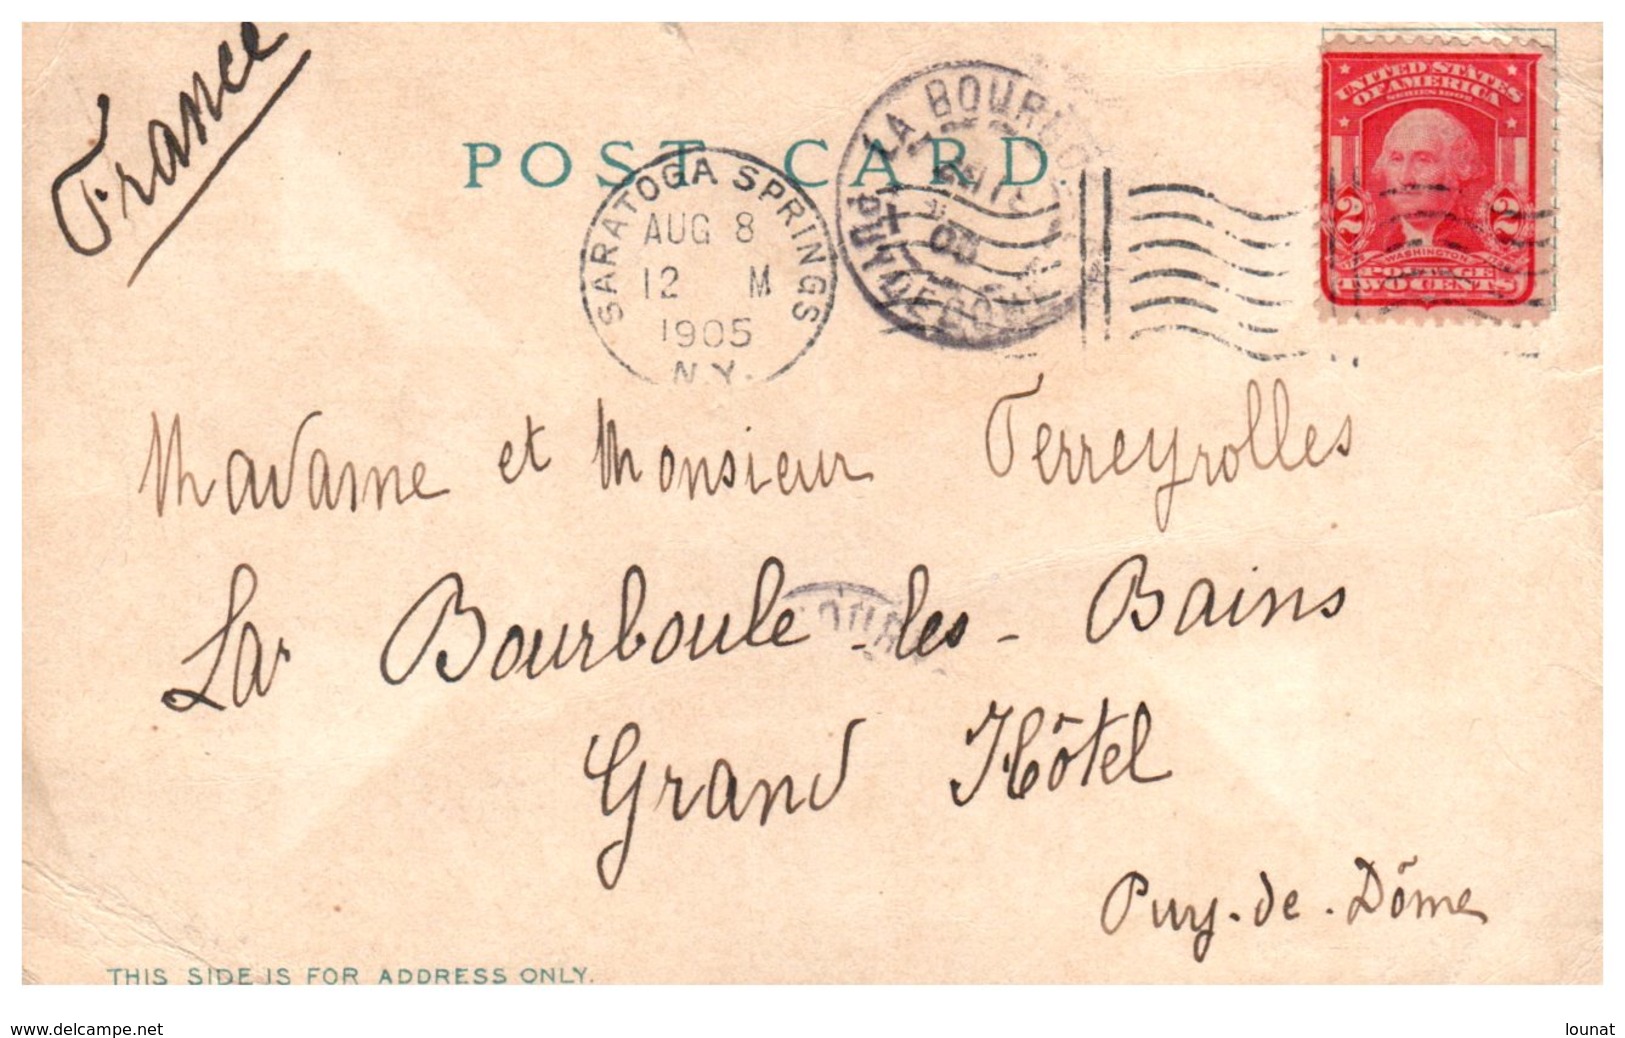 France
POST CARD
SARATOGA SPRINGS
AUG 8
12 M
1905
N.Y.
LA BOURBO
PUY DE DO
05
UNITED STATES
OF AMERICA
SERIES 1902
2 2
WASHINGTON
POSTAGE
TWO CENTS
Madame et Monsieur Terreyrolles
La Bourboule-les-Bains
Grand Hôtel
Puy-de-Dôme
THIS SIDE IS FOR ADDRESS ONLY.
www.delcampe.net
lounat